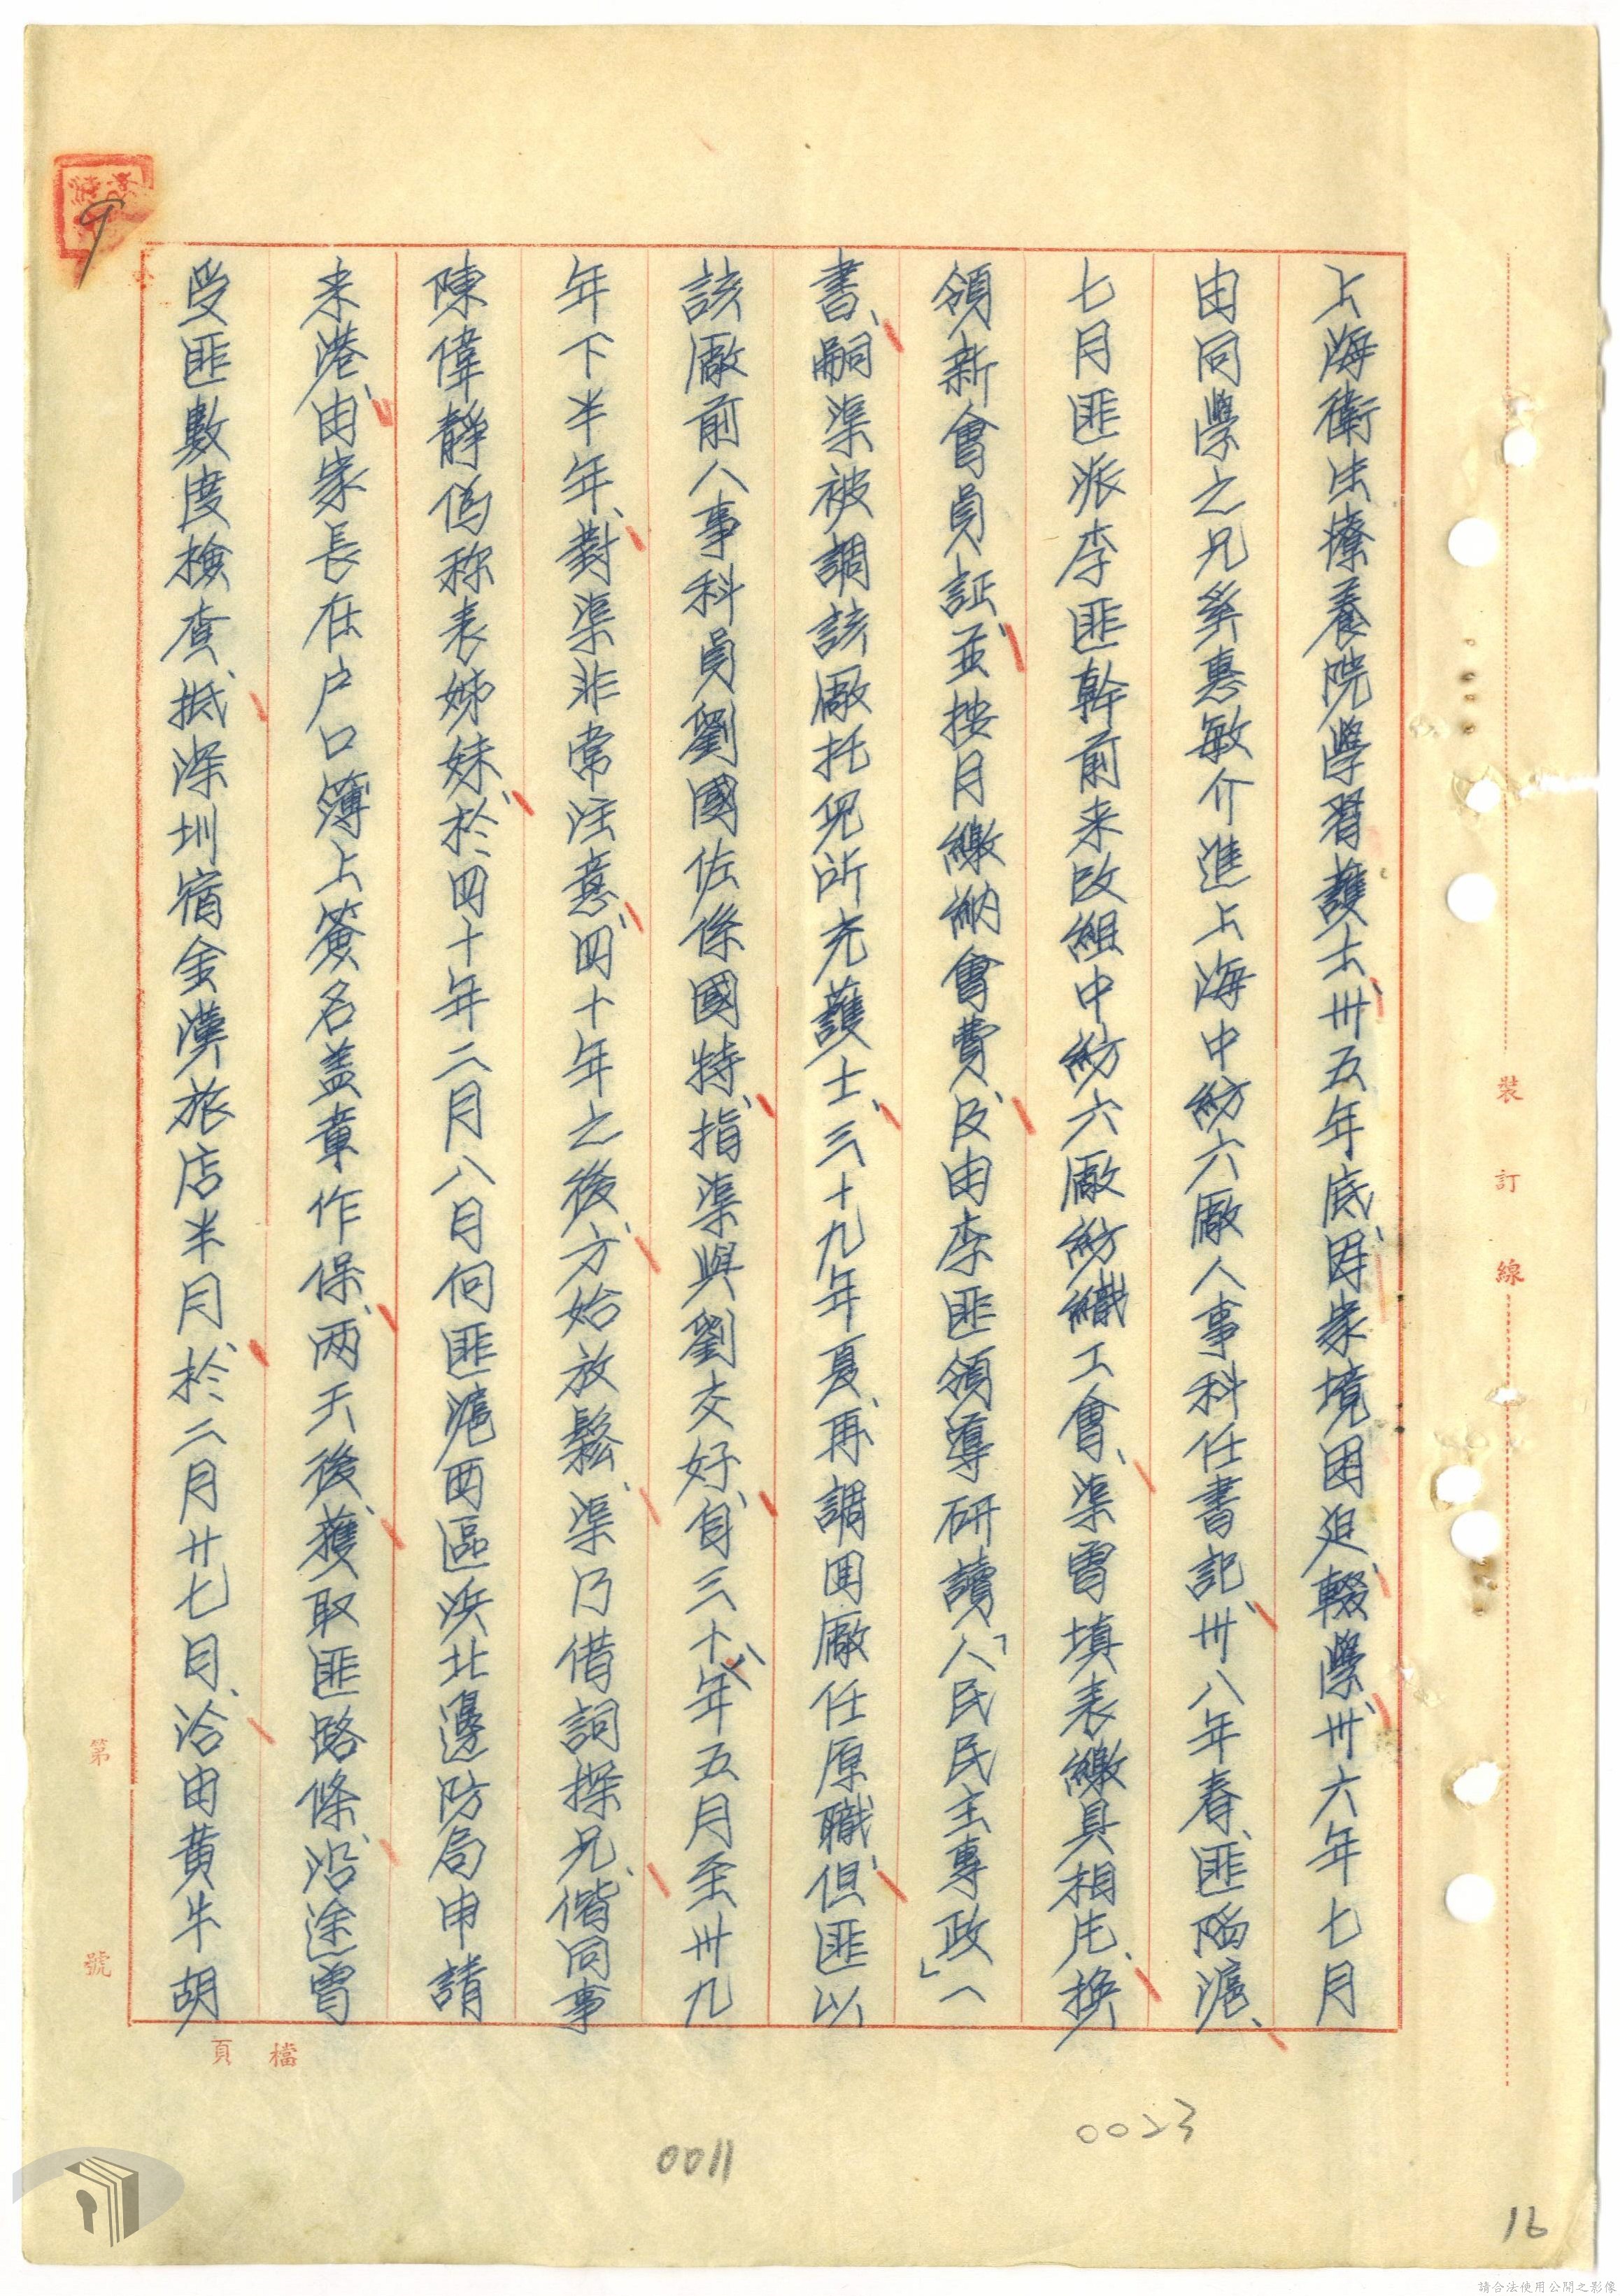 上海衛生療養院學習護士、卅五年底、因家境困迫、輟學、卅六年七月
由同學之兄奚惠敏介進上海中紡六廠人事科任書記、卅八年春、匪陷滬、
七月匪派李匪幹前来改組中紡六廠紡織工會、渠曾填表繳具相片、換
領新會員証、並按月繳納會費、及由李匪領導研讀「人民民主專政」一
書、嗣渠被調該廠托兒所充護士、三十九年夏、再調囬廠任原職、但匪以
該廠前人事科員劉國佐係國特、指渠與劉交好、自三十八年五月至卅九
年下半年、對渠非常注意、四十年之後、方始放鬆、渠乃借詞探兄、偕同事
陳偉靜偽称表姊妹、於四十年二月八日向匪滬西區浜北邊防局申請
来港、由家長在户口簿上簽名盖章作保、两天後、獲取匪路條、沿途曾
受匪數度檢查、抵深圳宿金漢旅店半月、於二月廿七日、洽由黄牛胡
裝訂線
第
號
檔
頁
0011
0023
16
請合法使用公開之影像